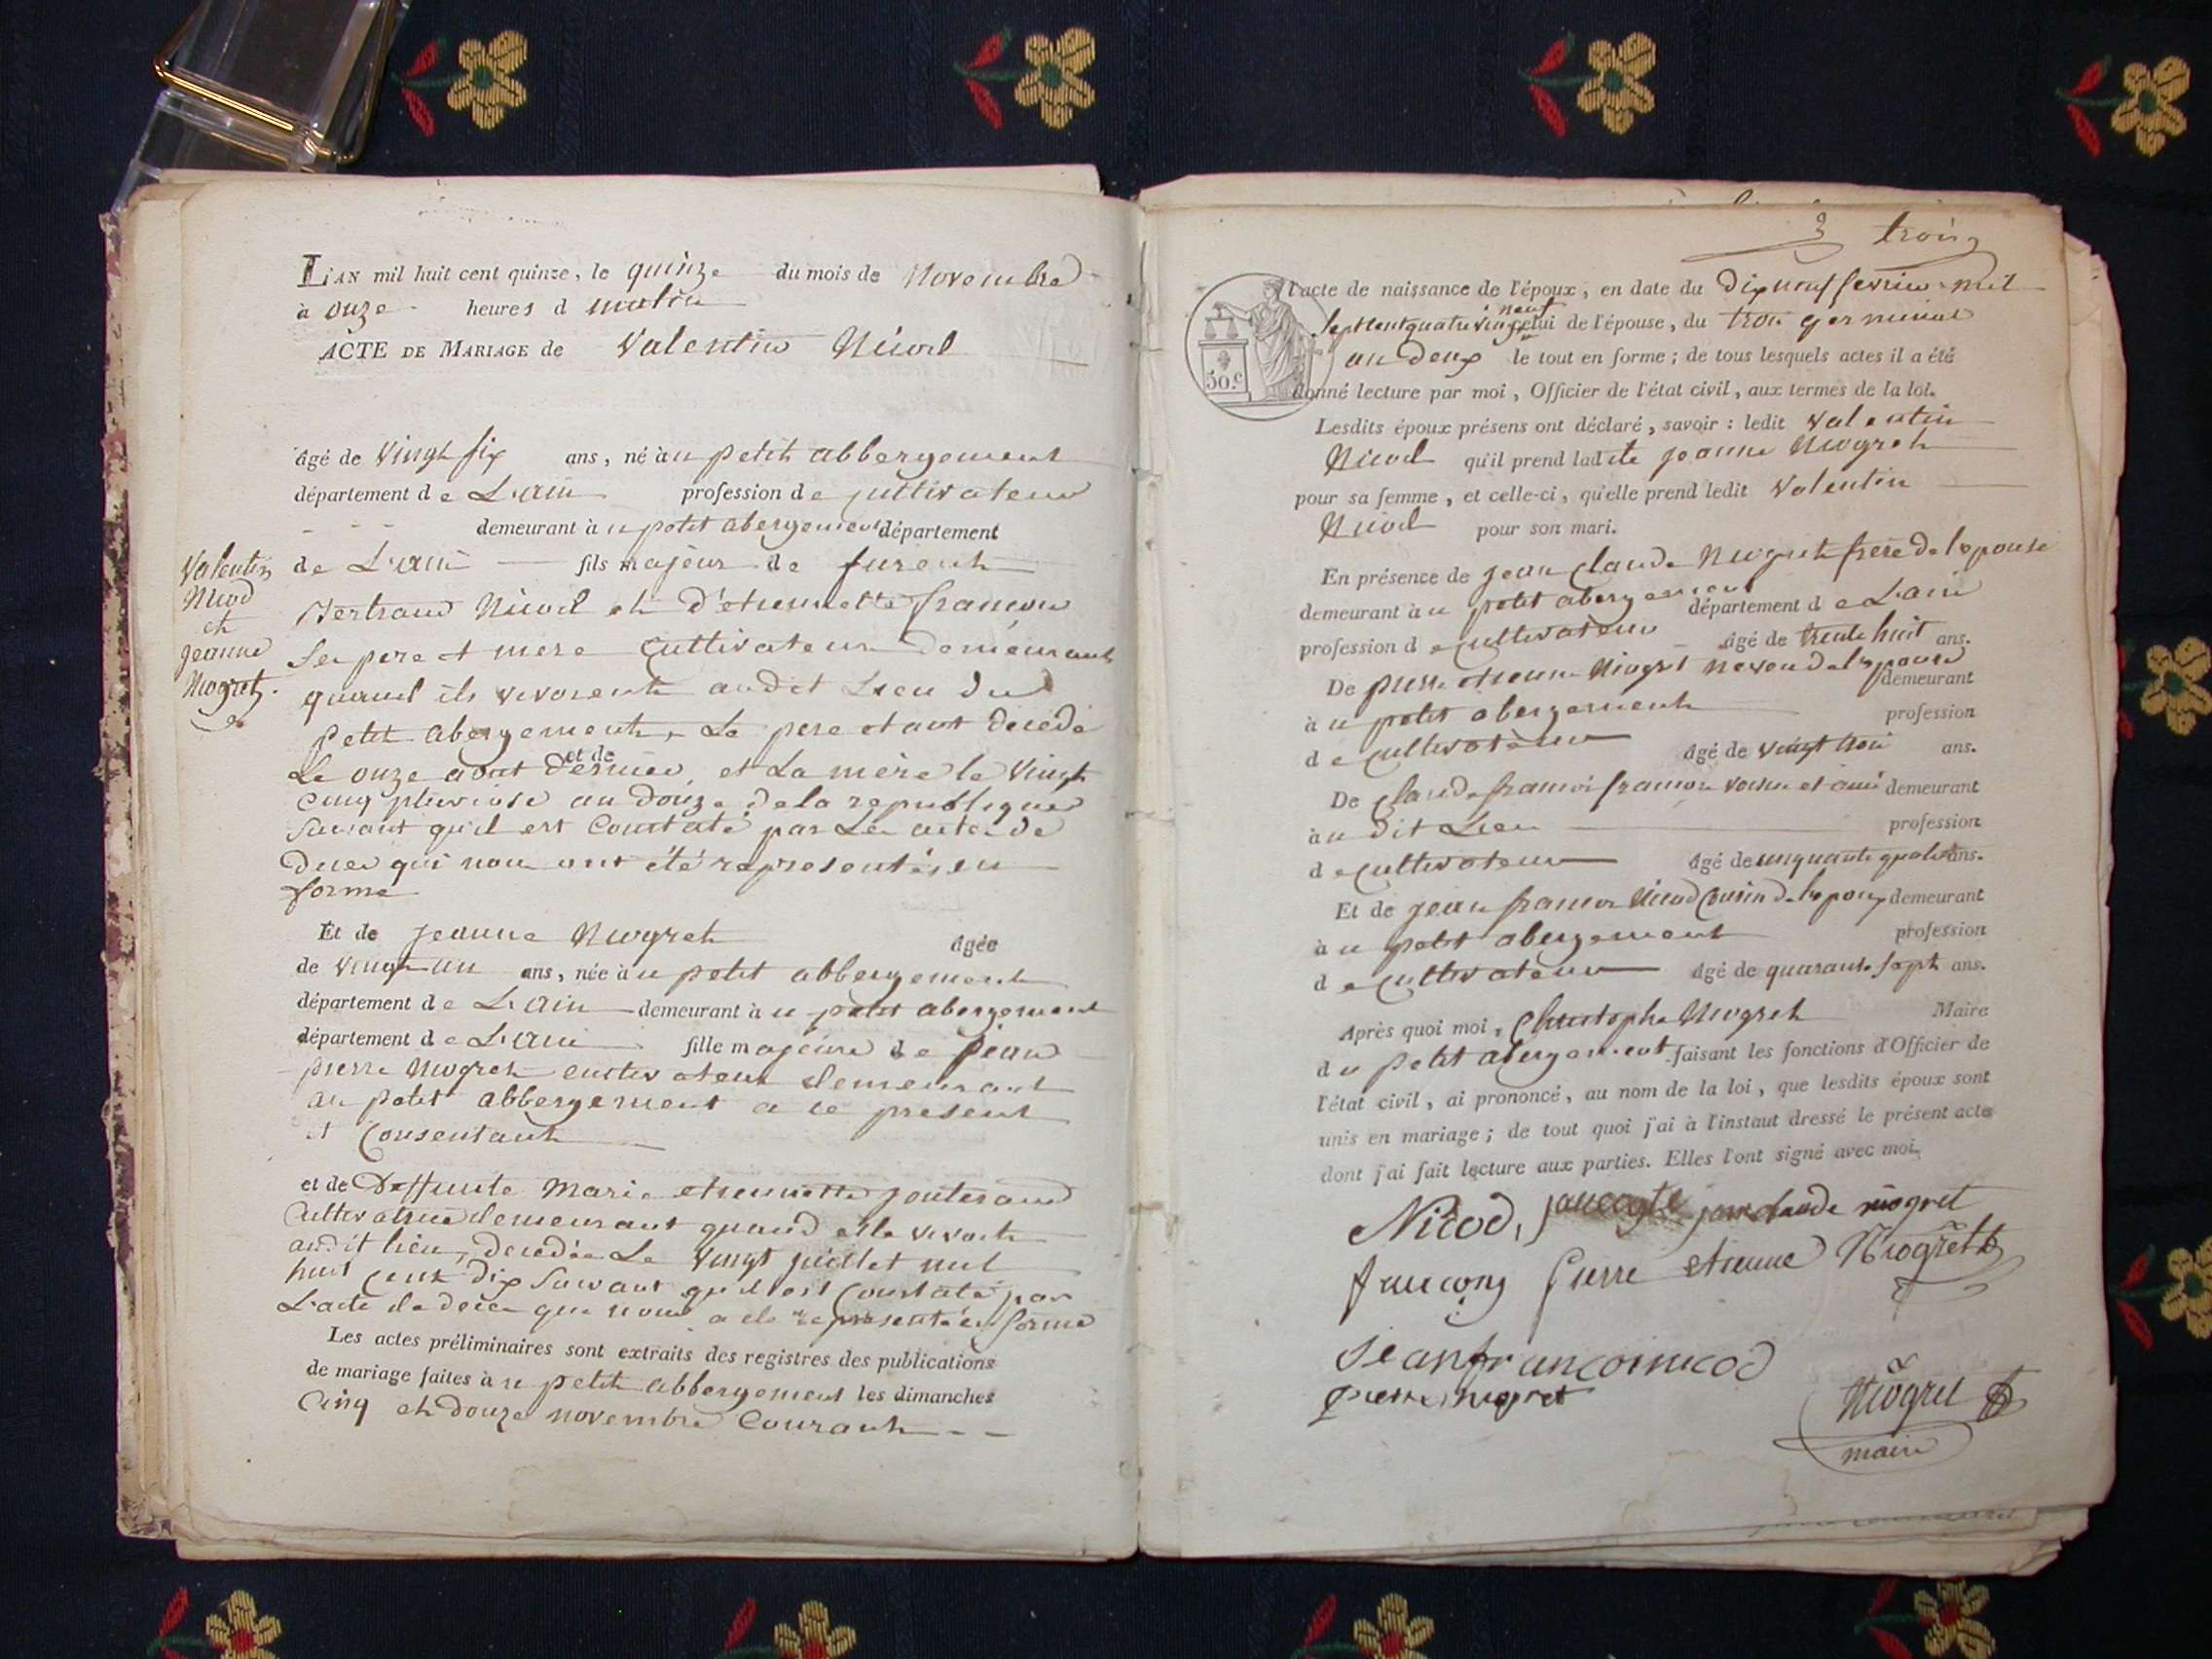 L'AN mil huit cent quinze, le quinze du mois de Novembre
à onze heures d matin
ACTE DE MARIAGE de Valentin Nicod
âgé de vingt six ans, né à u petit abbergement
département de L'ain profession de cultivateur
demeurant à u petit abergement département
de L'ain fils majeur de furent
Bertrand Nicod et d'etiennette françon
Ses pere et mere Cultivateurs demeurant
quand ils vivoient audit Lieu du
Petit abergement, Le pere etant décédé
et de
Le onze aout dernier, et La mère le Vingt
Cinq pluviose an douze de la republique
Suivant qu'il est Constaté par Les actes de
Deces qui nous ont été représentés en
forme
Valentin
Nicod
et
jeanne
Niogret.
Et de jeanne Niogret âgée
de vingt un ans, née à u petit abbergement
département de L'ain demeurant à u petit abergement
département de L'ain fille majeure de jean
pierre Niogret cultivateur demeurant
au petit abbergement a ce present
et Consentant
et de Deffunte Marie etiennette jouteraud
Cultivatrice demeurant quand elle vivoit
audit lieu, decedée Le vingt juillet mil
huit cent dix Suivant qu'il est Constaté par
L'acte de deces que nous a ete représenté en forme
Les actes préliminaires sont extraits des registres des publications
de mariage faites à u petit abbergement les dimanches
Cinq et douze novembre Courant
3 trois
50.c
l'acte de naissance de l'époux, en date du dix neuf fevrier mil
neuf
Sept cent quatre vingt celui de l'épouse, du trois germinal
an deux le tout en forme; de tous lesquels actes il a été
donné lecture par moi, Officier de l'état civil, aux termes de la loi.
Lesdits époux présens ont déclaré, savoir : ledit Valentin
Nicod qu'il prend ladite jeanne Niogret
pour sa femme, et celle-ci, qu'elle prend ledit Valentin
Nicod pour son mari.
En présence de jean claude Niogret frere de l'epouse
demeurant à u petit abergement département de L'ain
profession de cultivateur âgé de trente huit ans.
De pierre etienne Niogret neveu de l'epouse demeurant
à u petit abergement profession
de cultivateur âgé de vingt trois ans.
De claude françois françon voisin et ami demeurant
à u dit Lieu profession
de cultivateur âgé de cinquante quatre ans.
Et de jean françois Nicod Cousin de l'epoux demeurant
à u petit abergement profession
de cultivateur âgé de quarante sept ans.
Après quoi moi, Christophe Niogret Maire
du petit abergement faisant les fonctions d'Officier de
l'état civil, ai prononcé, au nom de la loi, que lesdits époux sont
unis en mariage; de tout quoi j'ai à l'instant dressé le présent acte
dont j'ai fait lecture aux parties. Elles l'ont signé avec moi.
Nicod, jean claude niogret
francong Pierre etienne Niogret
Jeanfrancoinicod
pierre niogret
Niogret
maire